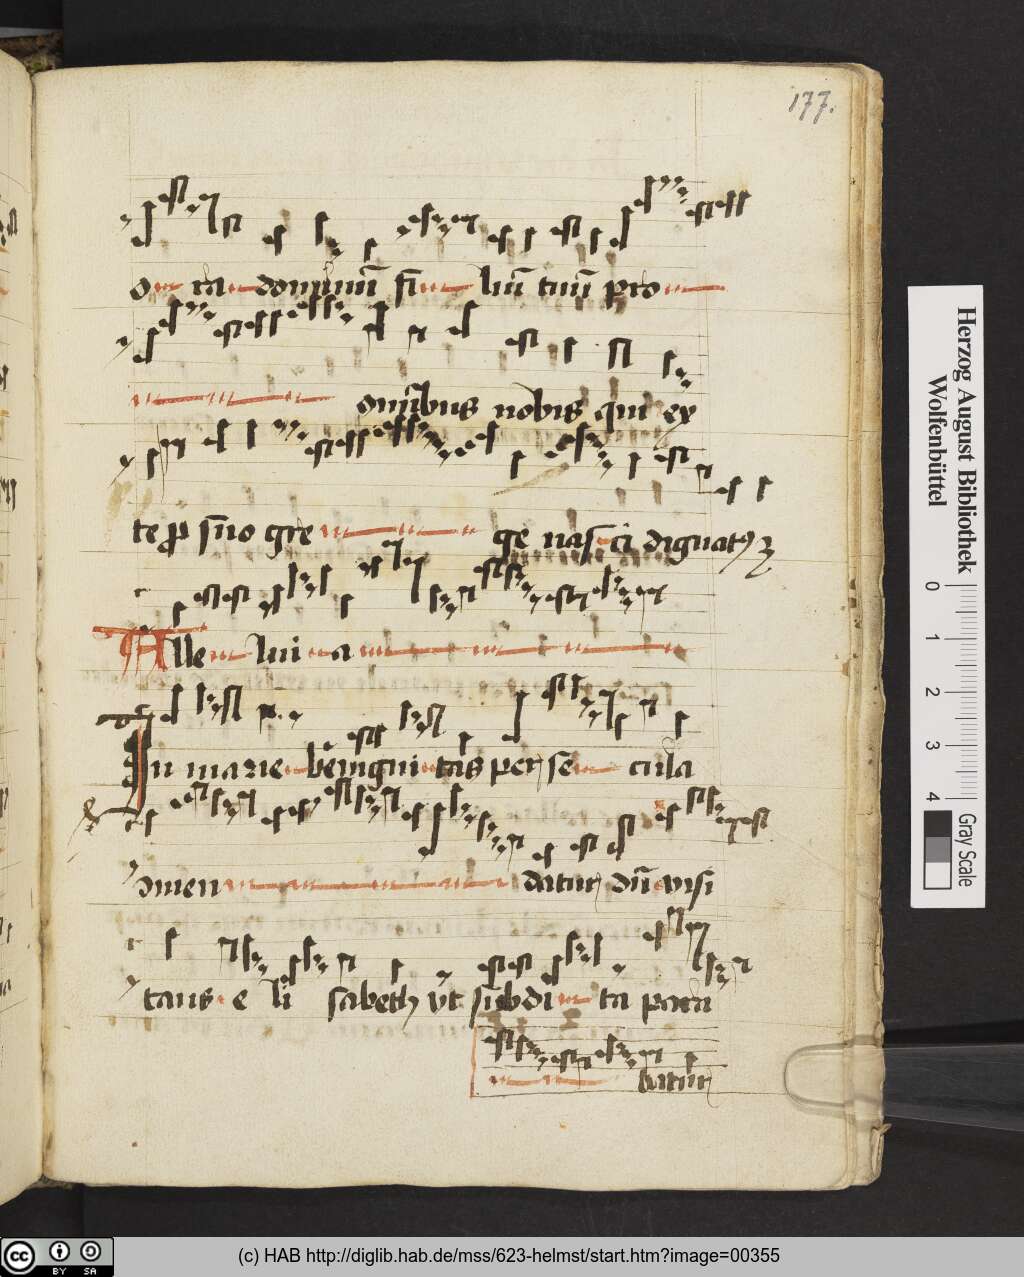 177.
o ra dominū fi liū tuū pro
omībus nobis qui ex
te p sño gre ge nasci dignatꝰ ꝫ
Alle lui a
In marie benigni tas per se cula
omen datur dñ visi
tans e li sabeth vt subdi ta para
batur
Herzog August Bibliothek
Wolfenbüttel
0 1 2 3 4
Gray Scale
cc BY SA
(c) HAB http://diglib.hab.de/mss/623-helmst/start.htm?image=00355